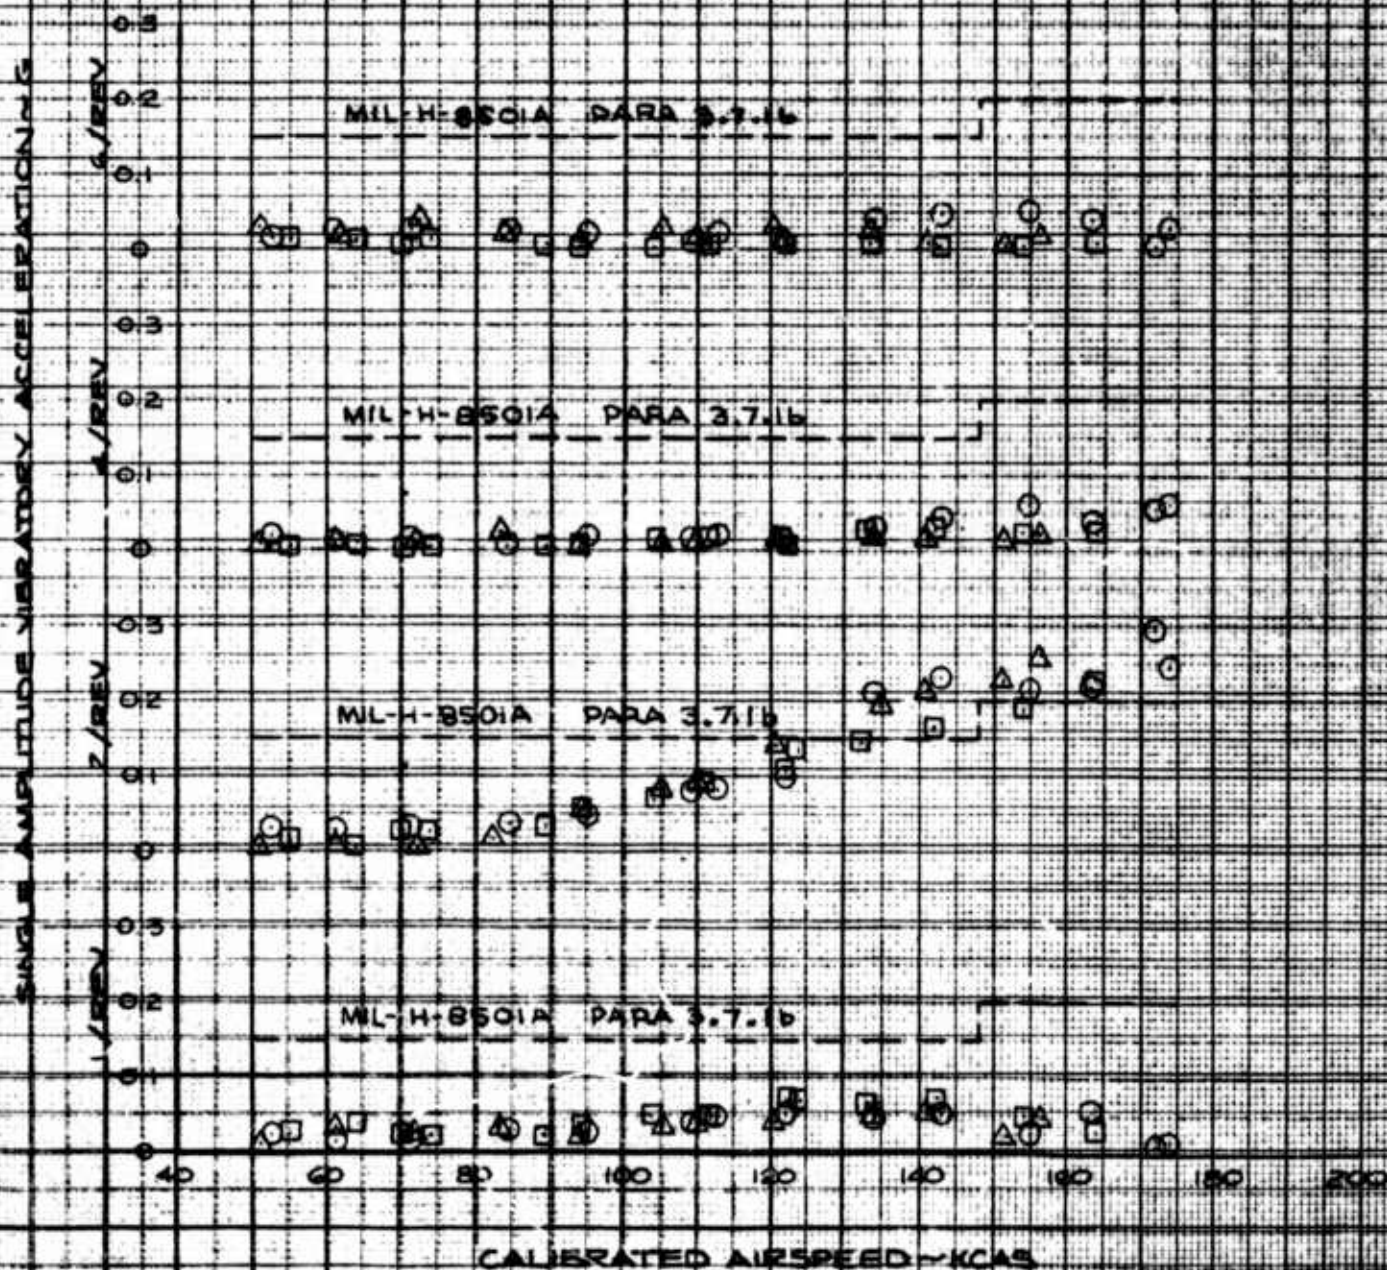 SINGLE AMPLITUDE VIBRATORY ACCELERATION~G
6/REV
0.3
0.2
0.1
0
MIL-H-8501A PARA 3.7.1b
4/REV
0.3
0.2
0.1
0
MIL-H-8501A PARA 3.7.1b
2/REV
0.3
0.2
0.1
0
MIL-H-8501A PARA 3.7.1b
1/REV
0.3
0.2
0.1
0
MIL-H-8501A PARA 3.7.1b
40 60 80 100 120 140 160 180 200
CALIBRATED AIRSPEED~KCAS